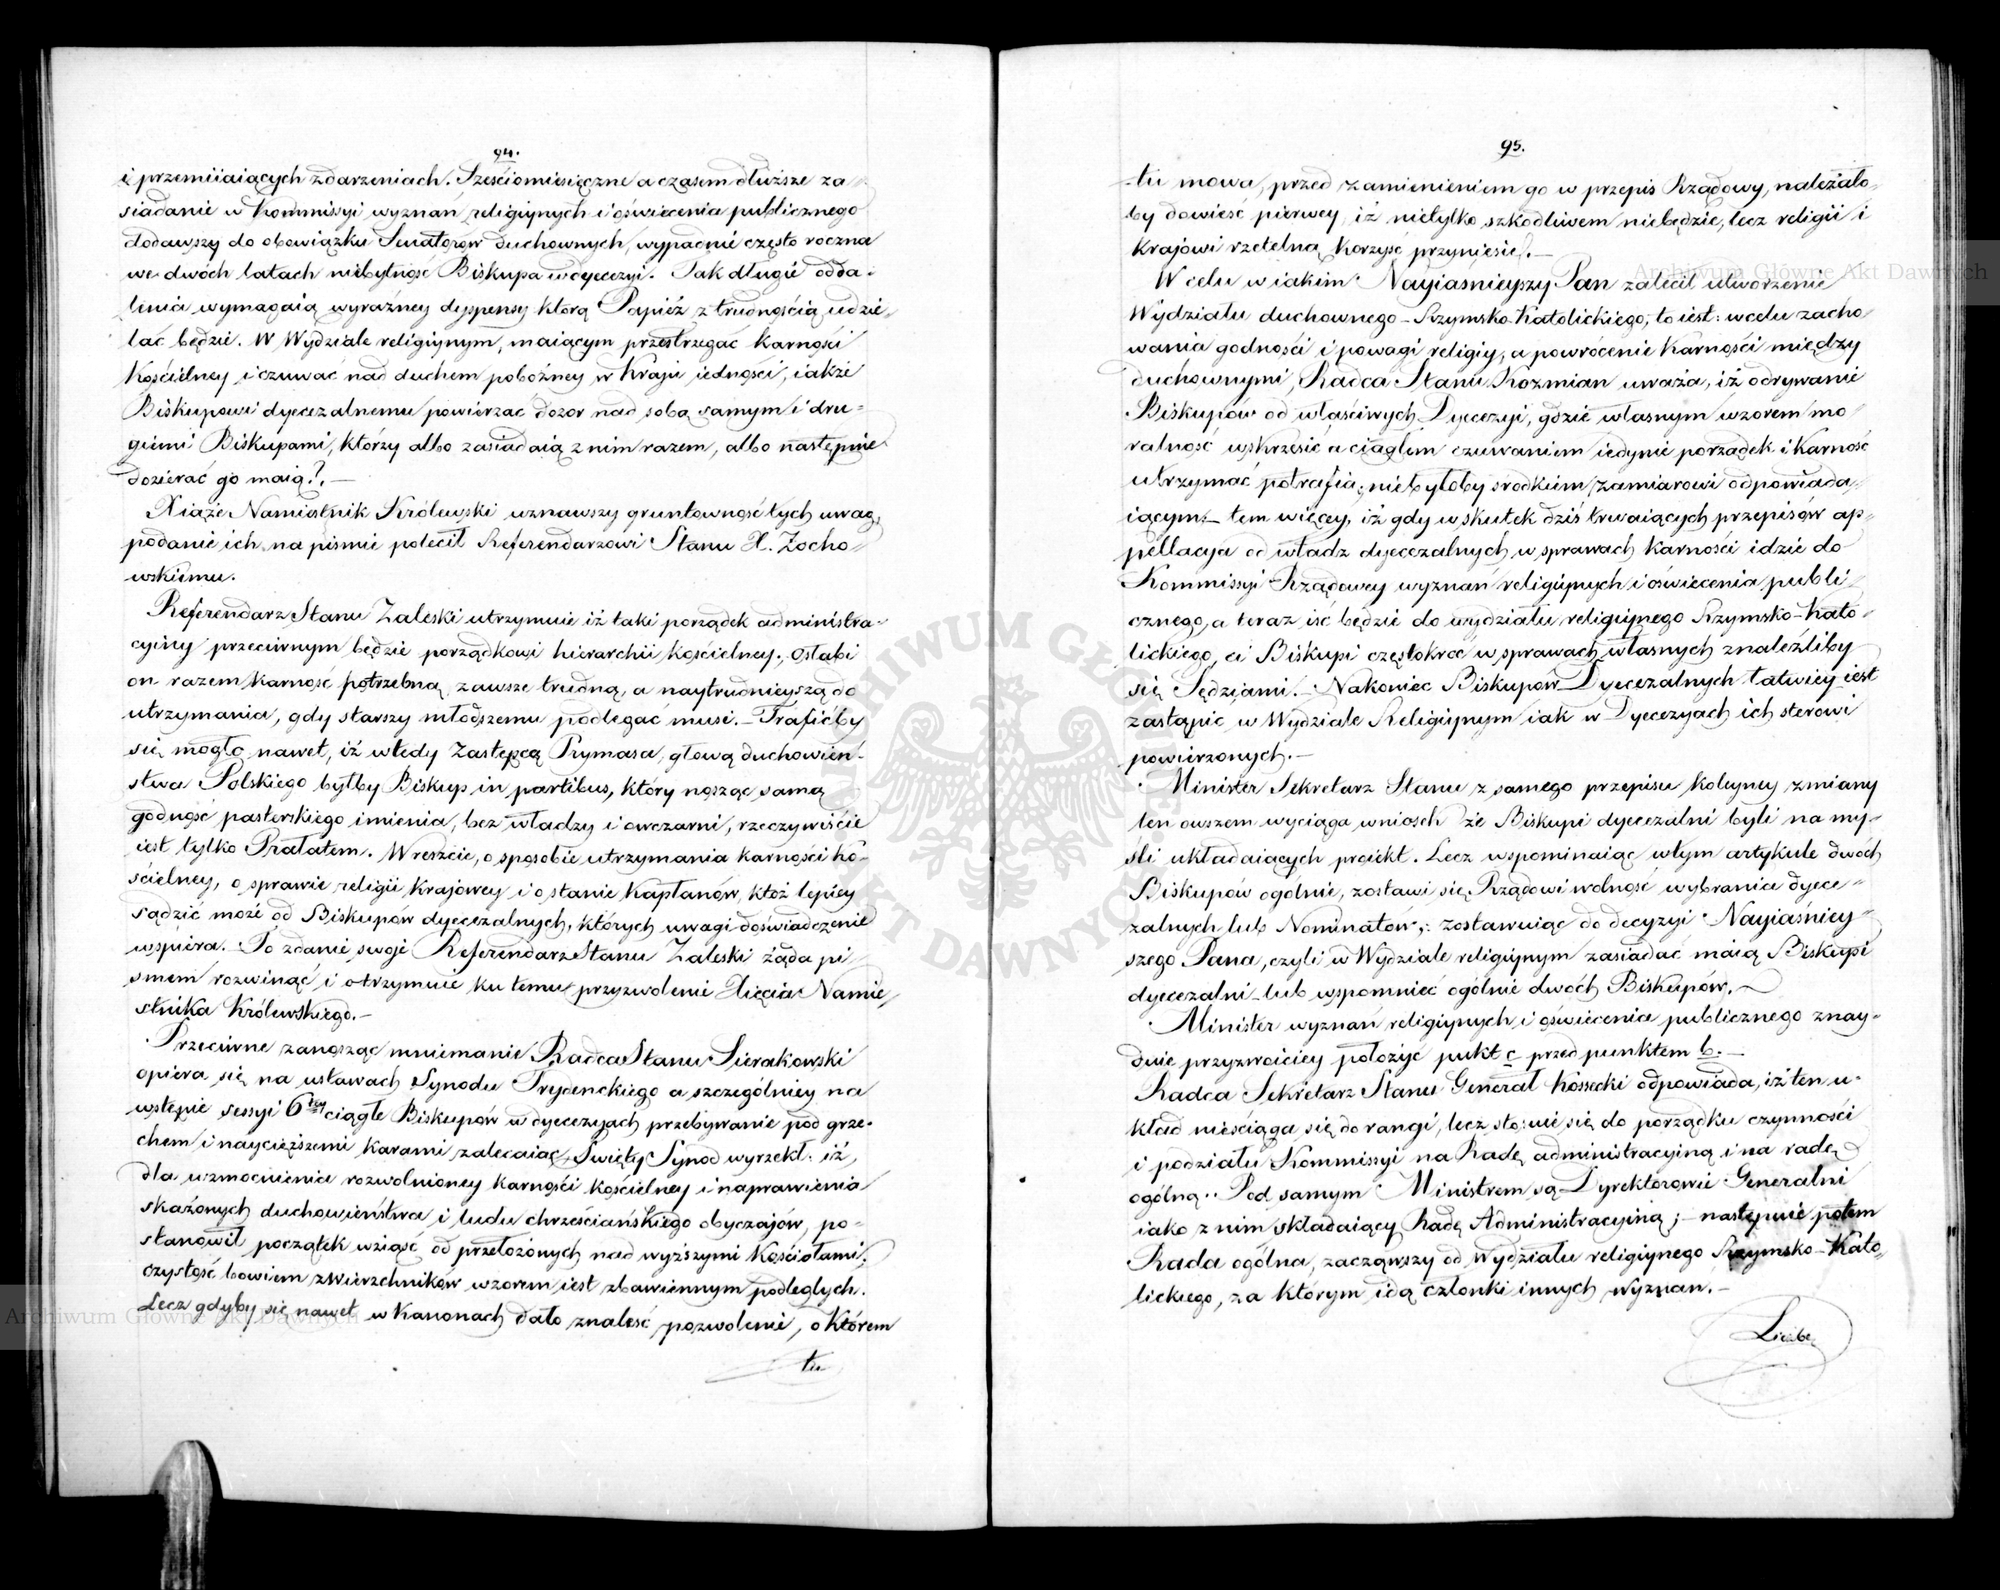 94.
i przemiiaiących zdarzeniach. Sześciomiesięczne a czasem dłuższe za-
siadanie w Kommissyi wyznań religiynych i oświecenia publicznego
dodawszy do obowiązku Senatorow duchownych, wypadnie często roczna
we dwóch latach niebytność Biskupa w dyecezyi. Tak długie odda-
lenia wymagaią wyraźney dyspensy ktorą Papież z trudnością udzie-
lać będzie. W Wydziale religiynym, maiącym przestrzegać karności
Kościelney i czuwać nad duchem pobożney w Kraju iedności, iakże
Biskupowi dyecezalnemu powierzać dozor nad sobą samym i dru-
giemi Biskupami, którzy albo zasiadaią z nim razem, albo następnie
dozierać go maią?. —
Xiąże Namiestnik Królewski uznawszy gruntowność tych uwag,
podanie ich na pismie polecił Referendarzowi Stanu X. Zocho-
wskiemu.
Referendarz Stanu Zaleski utrzymuie iż taki porządek administra-
cyiny przeciwnym będzie porządkowi hierarchii kościelney; osłabi
on razem karność potrzebną, zawsze trudną, a naytrudnieyszą do
utrzymania, gdy starszy młodszemu podlegać musi. — Trafićby
się mogło nawet, iż wtedy Zastępcą Prymasa, głową duchowień-
stwa Polskiego byłby Biskup in partibus, który nosząc samą
godność pasterskiego imienia, bez władzy i owczarni, rzeczywiście
iest tylko Prałatem. Wreszcie, o sposobie utrzymania karności ko-
ścielney, o sprawie religii Kraiowey i o stanie Kapłanów, ktoż lepiey
sądzić może od Biskupów dyecezalnych, których uwagi doświadczenie
wspiera. To zdanie swoje Referendarz Stanu Zaleski żąda pi-
smem rozwinąć i otrzymuie ku temu przyzwolenie Xięcia Namie-
stnika Królewskiego. —
Przeciwne zanosząc mniemanie Radca Stanu Sierakowski
opiera się na ustawach Synodu Trydenckiego a szczególniey na
wstępie sessyi 6tey ciągłe Biskupów w dyecezyach przebywanie pod grze-
chem i naycięższemi karami zalecaiąc, Święty Synod wyrzekł: iż,
dla wzmocnienia rozwolnioney karności kościelney i naprawienia
skażonych duchowieństwa i ludu chrześciańskiego obyczajów, po-
stanowił początek wziąść od przełożonych nad wyższymi Kościołami;
czystość bowiem zwierzchników wzorem iest zbawiennym podległych.
Lecz gdyby się nawet w Kanonach dało znaleść pozwolenie, o Którem
tu
95.
tu mowa, przed zamienieniem go w przepis Rządowy, należało-
by dowieść pierwey, iż nietylko szkodliwem niebędzie, lecz religii i
krajowi rzetelną korzyść przyniesie. —
W celu w iakim Nayiaśnieyszy Pan zalecił utworzenie
Wydziału duchownego - Rzymsko-Katolickiego, to iest: w celu zacho-
wania godności i powagi religiy, a powrócenie karności między
duchownymi, Radca Stanu Kozmian uważa, iż odrywanie
Biskupów od właściwych Dyecezyi, gdzie własnym wzorem mo-
ralność wskrzesić a ciągłem czuwaniem iedynie porządek i karność
utrzymać potrafią, niebyłoby srodkiem zamiarowi odpowiada-
iącym: - tem więcey, iż gdy w skutek dziś trwaiących przepisów ap-
pellacja od władz dyecezalnych w sprawach karności idzie do
Kommissyi Rządowey wyznań religiynych i oświecenia publi-
cznego, a teraz iść będzie do wydziału religiynego Rzymsko-Kato-
lickiego, ci Biskupi częstokroć w sprawach własnych znaleźliby
się Sędziami. Nakoniec Biskupów Dyecezalnych łatwiey iest
zastąpić w Wydziale Religiynym iak w Dyecezyach ich sterowi
powierzonych. —
Minister Sekretarz Stanu z samego przepisu koleyney zmiany
ten owszem wyciąga wniosek że Biskupi dyecezalni byli na my-
śli układaiących proiekt. Lecz wspominaiąc w tym artykule dwóch
Biskupów ogólnie, zostawi się Rządowi wolność wybrania dyece-
zalnych lub Nominatów; zostawuiąc do decyzyi Nayiaśniey-
szego Pana, czyli w Wydziale religiynym zasiadać maią Biskupi
dyecezalni - lub wspomnieć ogólnie dwóch Biskupów. —
Minister wyznań religiynych i oświecenia publicznego znay-
duie przyzwoiciey położyć pukt c przed punktem b. —
Radca Sekretarz Stanu Generał Kossecki odpowiada, iż ten u-
kład nieściąga się do rangi, lecz stosuie się do porządku czynności
i podziału Kommissyi na Radę administracyiną i na radę
ogólną. Pod samym Ministrem są Dyrektorowie Generalni
iako z nim składaiący Radę Administracyiną; - następuie potem
Rada ogólna, zacząwszy od Wydziału religiynego Rzymsko-Kato-
lickiego, za którym idą członki innych wyznan. —
Liczbę
Archiwum Główne Akt Dawnych
Archiwum Główne Akt Dawnych
ARCHIWUM GŁÓWNE AKT DAWNYCH